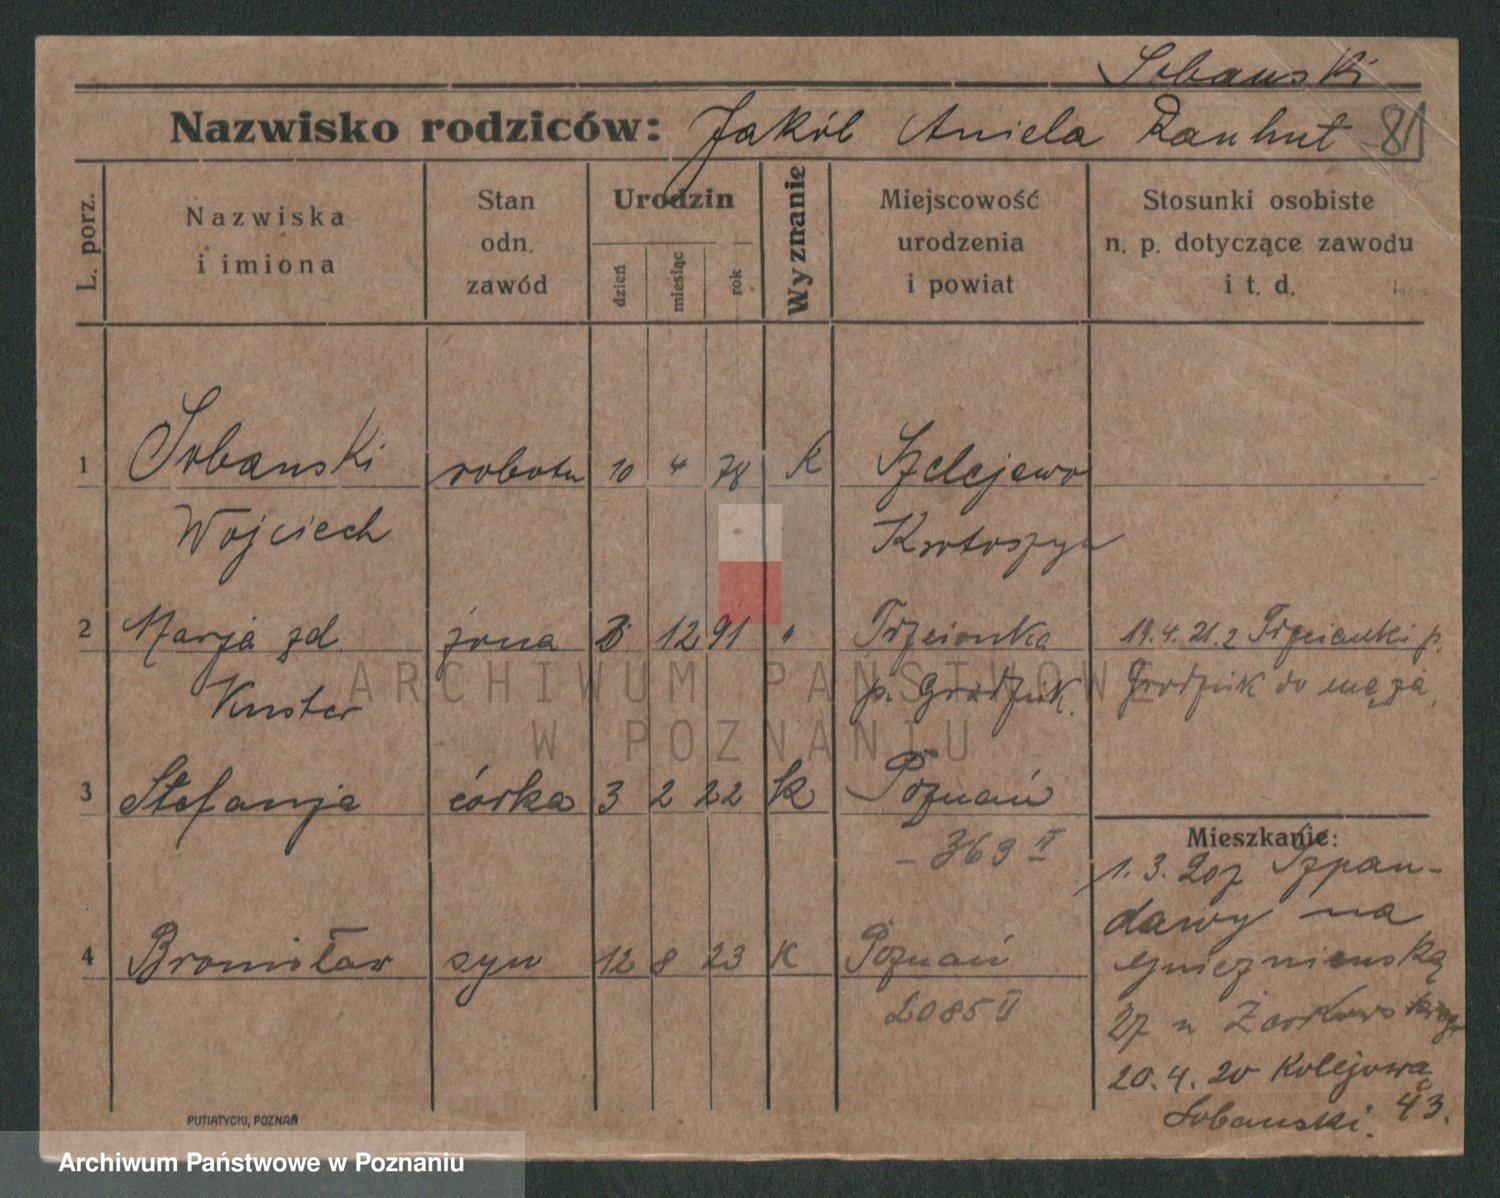 Sobanski
Nazwisko rodziców: Jakób Aniela Rauhut 81
L. porz.
Nazwiska
i imiona
Stan
odn.
zawód
Urodzin
dzień
miesiąc
rok
Wyznanie
Miejscowość
urodzenia
i powiat
Stosunki osobiste
n. p. dotyczące zawodu
i t. d.
1 Sobanski robotn 10 4 78 k Szelejewo
Wojciech Krotoszyn
2 Marja zd. żona 12 91 " Trzcionka 19.4.21. z Trzcianki p.
Kuster p. Grodzisk. Grodzisk do męża.
3 Stefanja córka 3 2 22 k Poznań
- 363 II
Mieszkanie:
1. 3. 20 z Szpan-
dawy na
Gnieznienską
4 Bronisław syn 12 8 23 K Poznań
2085 II
27 u
20. 4. 20 Kolejowa
43.
Sobanski.
PUTIATYCKI, POZNAŃ
ARCHIWUM PAŃSTWOWE
W POZNANIU
Archiwum Państwowe w Poznaniu